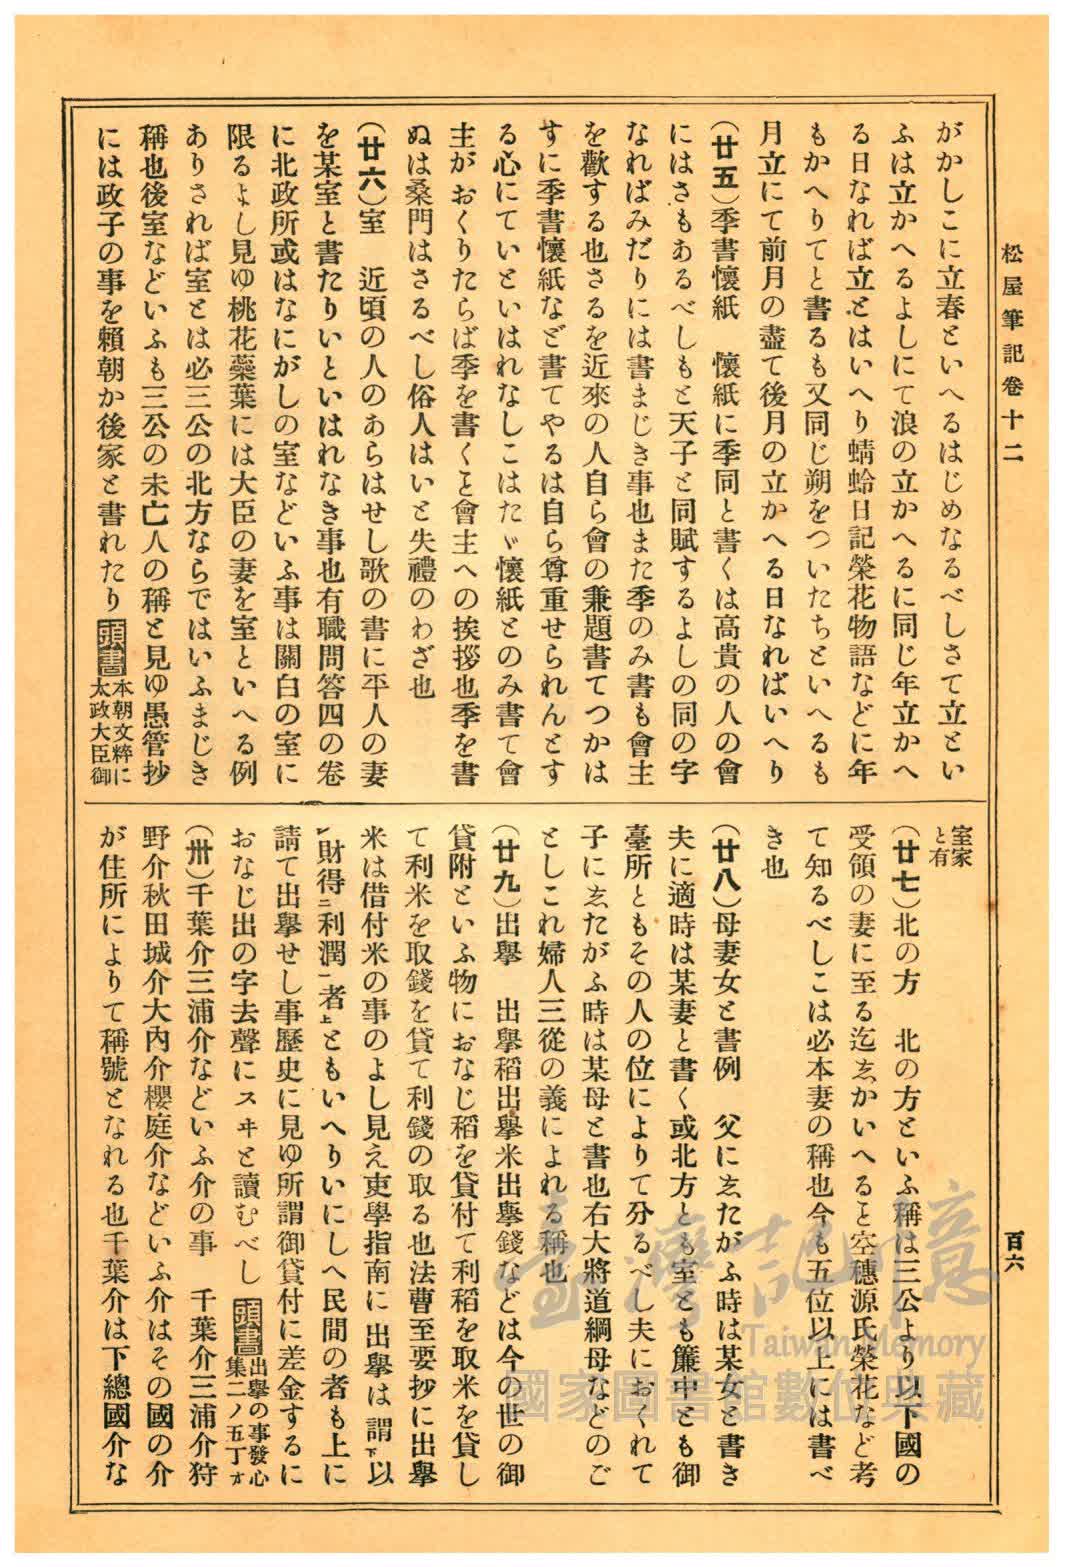 松屋筆記卷十二
百六
がかしこに立春といへるはじめなるべしさて立とい
ふは立かへるよしにて浪の立かへるに同じ年立かへ
る日なれば立とはいへり蜻蛉日記榮花物語などに年
もかへりてと書るも又同じ朔をついたちといへるも
月立にて前月の盡て後月の立かへる日なればいへり
(廿五)季書懷紙　懷紙に季同と書くは高貴の人の會
にはさもあるべしもと天子と同賦するよしの同の字
なればみだりには書まじき事也また季のみ書も會主
を歡する也さるを近來の人自ら會の兼題書てつかは
すに季書懷紙など書てやるは自ら尊重せられんとす
る心にていといはれなしこはたゞ懷紙とのみ書て會
主がおくりたらば季を書くを會主への挨拶也季を書
ぬは桑門はさるべし俗人はいと失禮のわざ也
(廿六)室　近頃の人のあらはせし歌の書に平人の妻
を某室と書たりいといはれなき事也有職問答四の卷
に北政所或はなにがしの室などいふ事は關白の室に
限るよし見ゆ桃花蘂葉には大臣の妻を室といへる例
ありされば室とは必三公の北方ならではいふまじき
稱也後室などいふも三公の未亡人の稱と見ゆ愚管抄
には政子の事を賴朝か後家と書れたり頭書本朝文粹に
太政大臣御
室家
と有
(廿七)北の方　北の方といふ稱は三公より以下國の
受領の妻に至る迄ゑかいへると空穗源氏榮花など考
て知るべしこは必本妻の稱也今も五位以上には書べ
き也
(廿八)母妻女と書例　父にゑたがふ時は某女と書き
夫に適時は某妻と書く或北方とも室とも簾中とも御
臺所ともその人の位によりて分るべし夫におくれて
子にゑたがふ時は某母と書也右大將道綱母などのご
としこれ婦人三從の義によれる稱也
(廿九)出擧　出擧稻出擧米出擧錢などは今の世の御
貸附といふ物におなじ稻を貸付て利稻を取米を貸し
て利米を取錢を貸て利錢の取る也法曹至要抄に出擧
米は借付米の事のよし見え吏學指南に出擧は謂下以
レ財得二利潤一者上ともいへりいにしへ民間の者も上に
請て出擧せし事歷史に見ゆ所謂御貸付に差金するに
おなじ出の字去聲にスヰと讀むべし頭書出擧の事發心
集二ノ五丁オ
(卅)千葉介三浦介などいふ介の事　千葉介三浦介狩
野介秋田城介大內介櫻庭介などいふ介はその國の介
が住所によりて稱號となれる也千葉介は下總國介な
臺灣記憶
Taiwan Memory
國家圖書館數位典藏